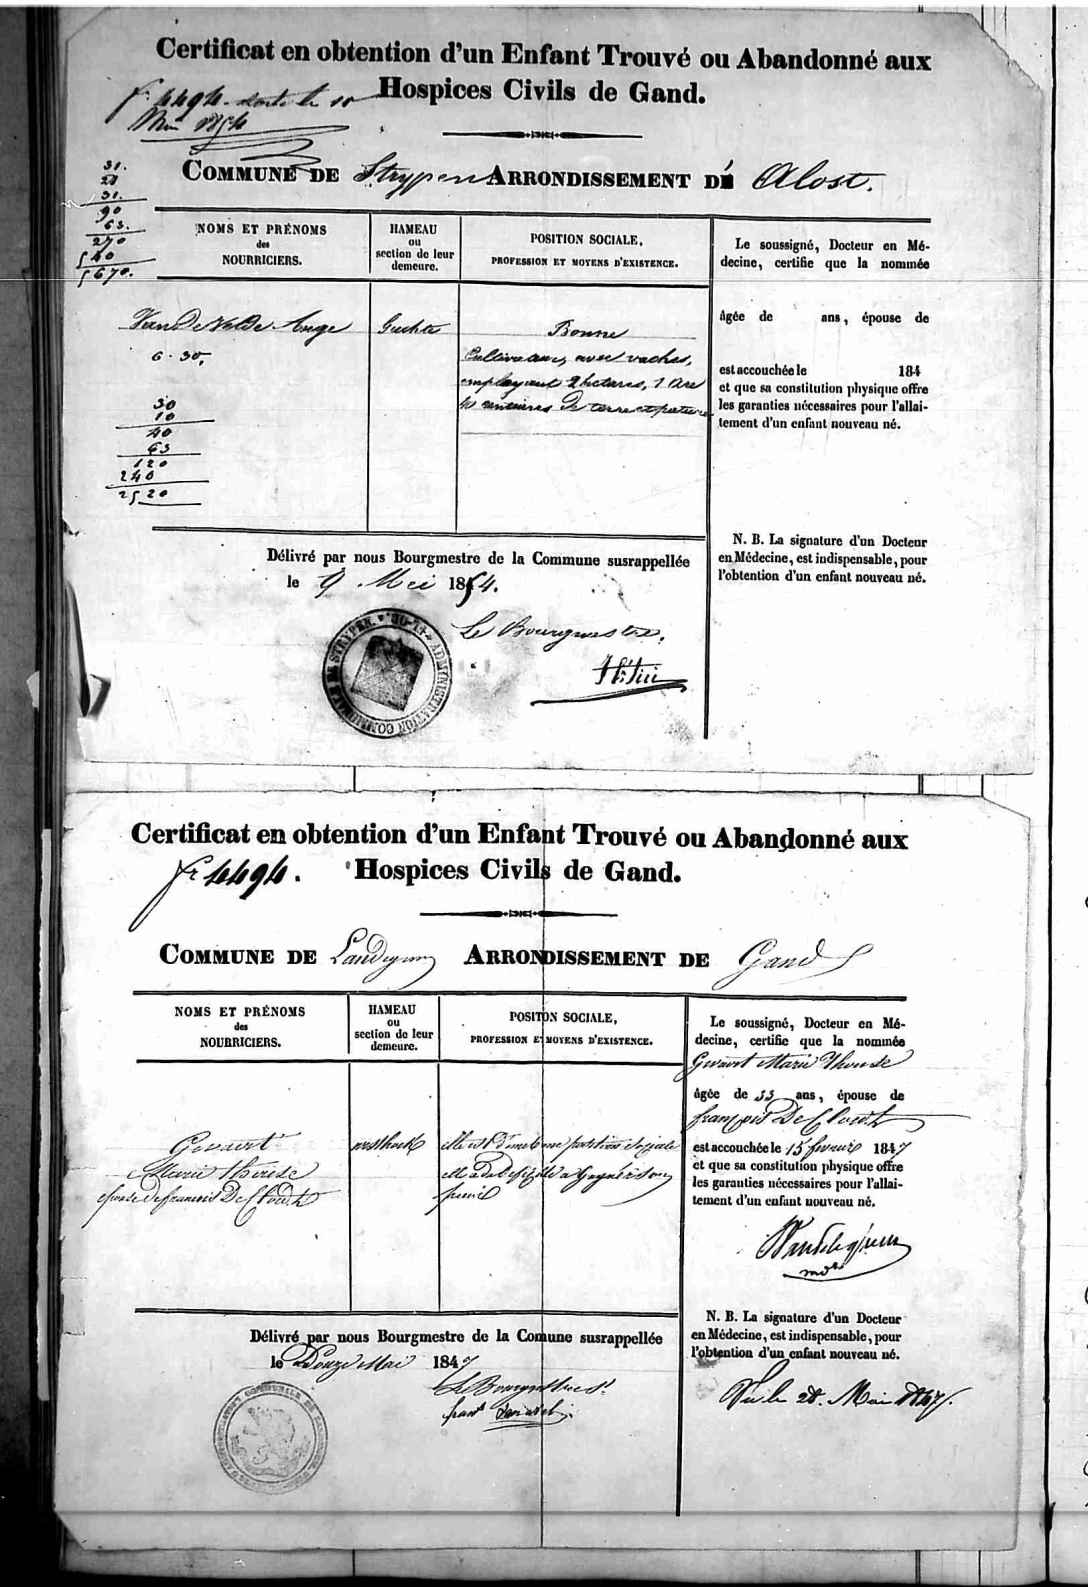 Certificat en obtention d'un Enfant Trouvé ou Abandonné aux
Hospices Civils de Gand.
4494. sorti le 10
Mai 1854
COMMUNE DE Strypen ARRONDISSEMENT D' Alost.
31.
28
31.
90
63.
270
540
5670.
NOMS ET PRÉNOMS
des
NOURRICIERS.
HAMEAU
ou
section de leur
demeure.
POSITION SOCIALE,
PROFESSION ET MOYENS D'EXISTENCE.
Le soussigné, Docteur en Mé-
decine, certifie que la nommée
âgée de ans, épouse de
est accouchée le 184
et que sa constitution physique offre
les garanties nécessaires pour l'allai-
tement d'un enfant nouveau né.
Van De Velde Ange
6.30,
30
10
40
63
120
240
2520
Bonne
Cultivateur, avec vaches,
employant 2 hectares, 1 are
centiares de terre et pature
N. B. La signature d'un Docteur
en Médecine, est indispensable, pour
l'obtention d'un enfant nouveau né.
Délivré par nous Bourgmestre de la Commune susrappellée
le 9 Mei 1854.
Le Bourgmestre,
ADMINISTRATION COMMUNALE DE STRYPEN.
Certificat en obtention d'un Enfant Trouvé ou Abandonné aux
4494. Hospices Civils de Gand.
COMMUNE DE ARRONDISSEMENT DE Gand
NOMS ET PRÉNOMS
des
NOURRICIERS.
HAMEAU
ou
section de leur
demeure.
POSITON SOCIALE,
PROFESSION ET MOYENS D'EXISTENCE.
Le soussigné, Docteur en Mé-
decine, certifie que la nommée
Gevaert Marie Therese
âgée de 33 ans, épouse de
françois De Clercq
est accouchée le 15 fevrier 1847
et que sa constitution physique offre
les garanties nécessaires pour l'allai-
tement d'un enfant nouveau né.
Gevaert
Marie Therese
epouse de francois De Clercq
elle est d'une bonne position
N. B. La signature d'un Docteur
en Médecine, est indispensable, pour
l'obtention d'un enfant nouveau né.
Vu le 28. Mai 1847.
Délivré par nous Bourgmestre de la Comune susrappellée
le Douze Mai 1847
Le Bourgmestre